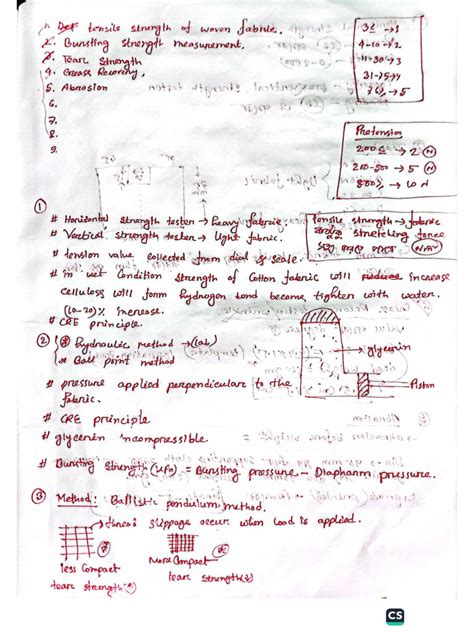 1. Det tensile strength of woven fabric.
2. Bursting strength measurement.
3. Tear strength
4. Crease Recovery,
5. Abrasion
6.
7.
8.
9.
3≤ →1
4-10→2
11-30→3
31-75→4
→5
Pretension
200≤ → 2 N
200-500 → 5 N
→ 10 N
①
# Horizontal strength tester → heavy fabric.
# Vertical strength tester → light fabric.
# tension value collected from dial & scale.
# in wet condition strength of cotton fabric will reduce increase
cellulose will form hydrogen bond become tighter with water.
(10-20)% increase.
# CRE principle
tensile strength → fabric
stretching force
②
* hydraulic method → (lab)
* Ball point method
# pressure applied perpendicular to the
fabric.
# CRE principle
# glycerin incompressible
→ glycerin
Piston
# Bursting strength (kPa) = Bursting pressure - Diapharm pressure.
③ Method: Ballistic pendulum method.
slippage occur when load is applied.
less compact
tear strength(↑)
More Compact
tear strength(↓)
CS